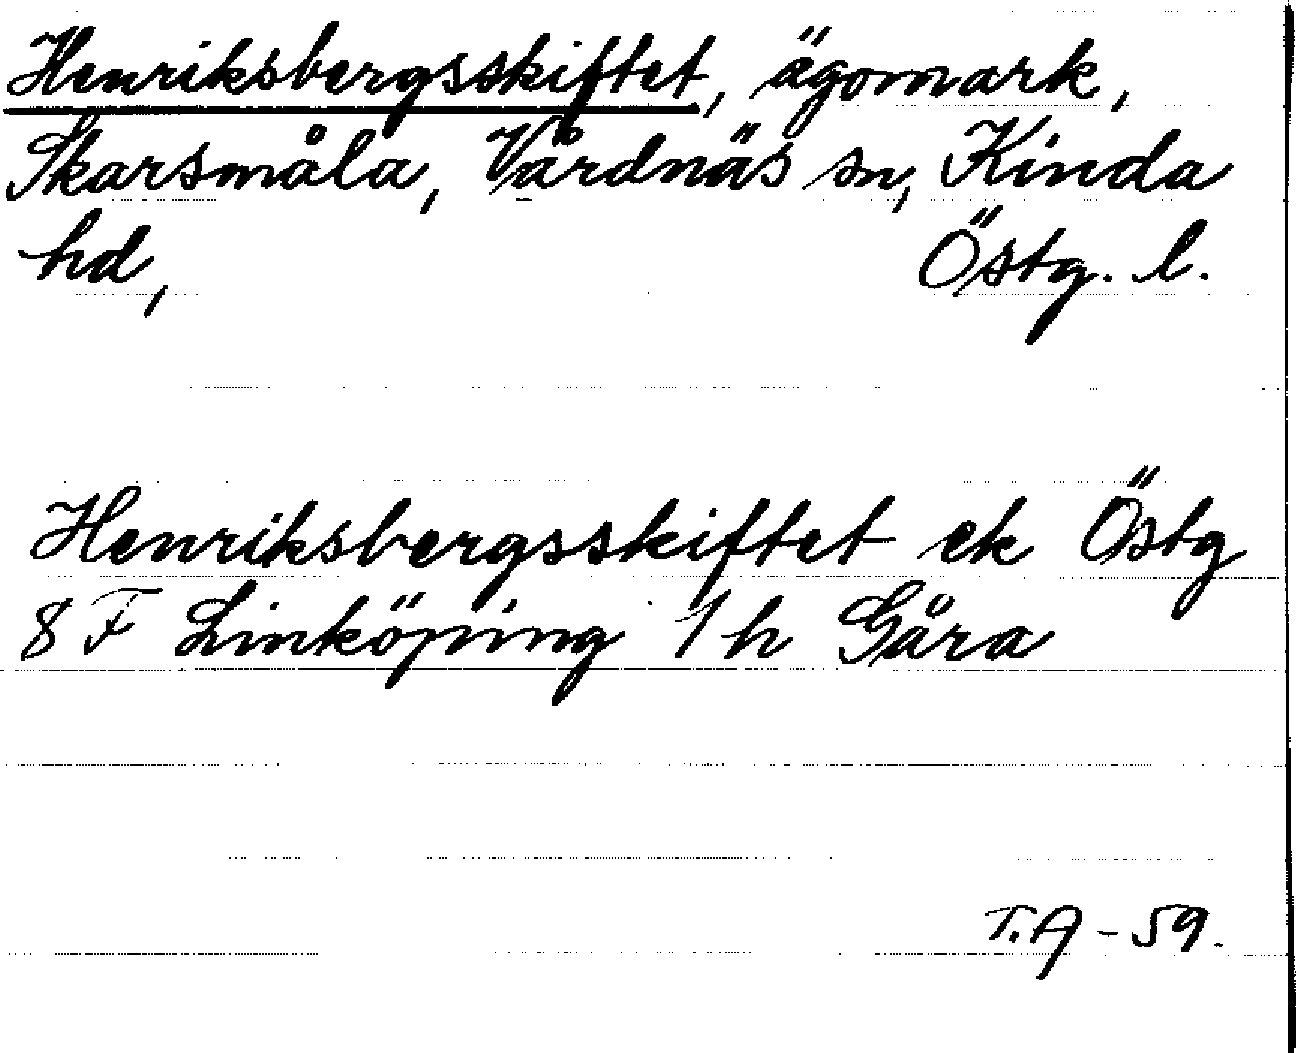 Henriksbergsskiftet, ägomark,
Skarsmåla, Vårdnäs sn, Kinda
hd, Östg. l.
Henriksbergsskiftet ek Östg
8 F Linköping 1 h Gåra
T.A - 59.